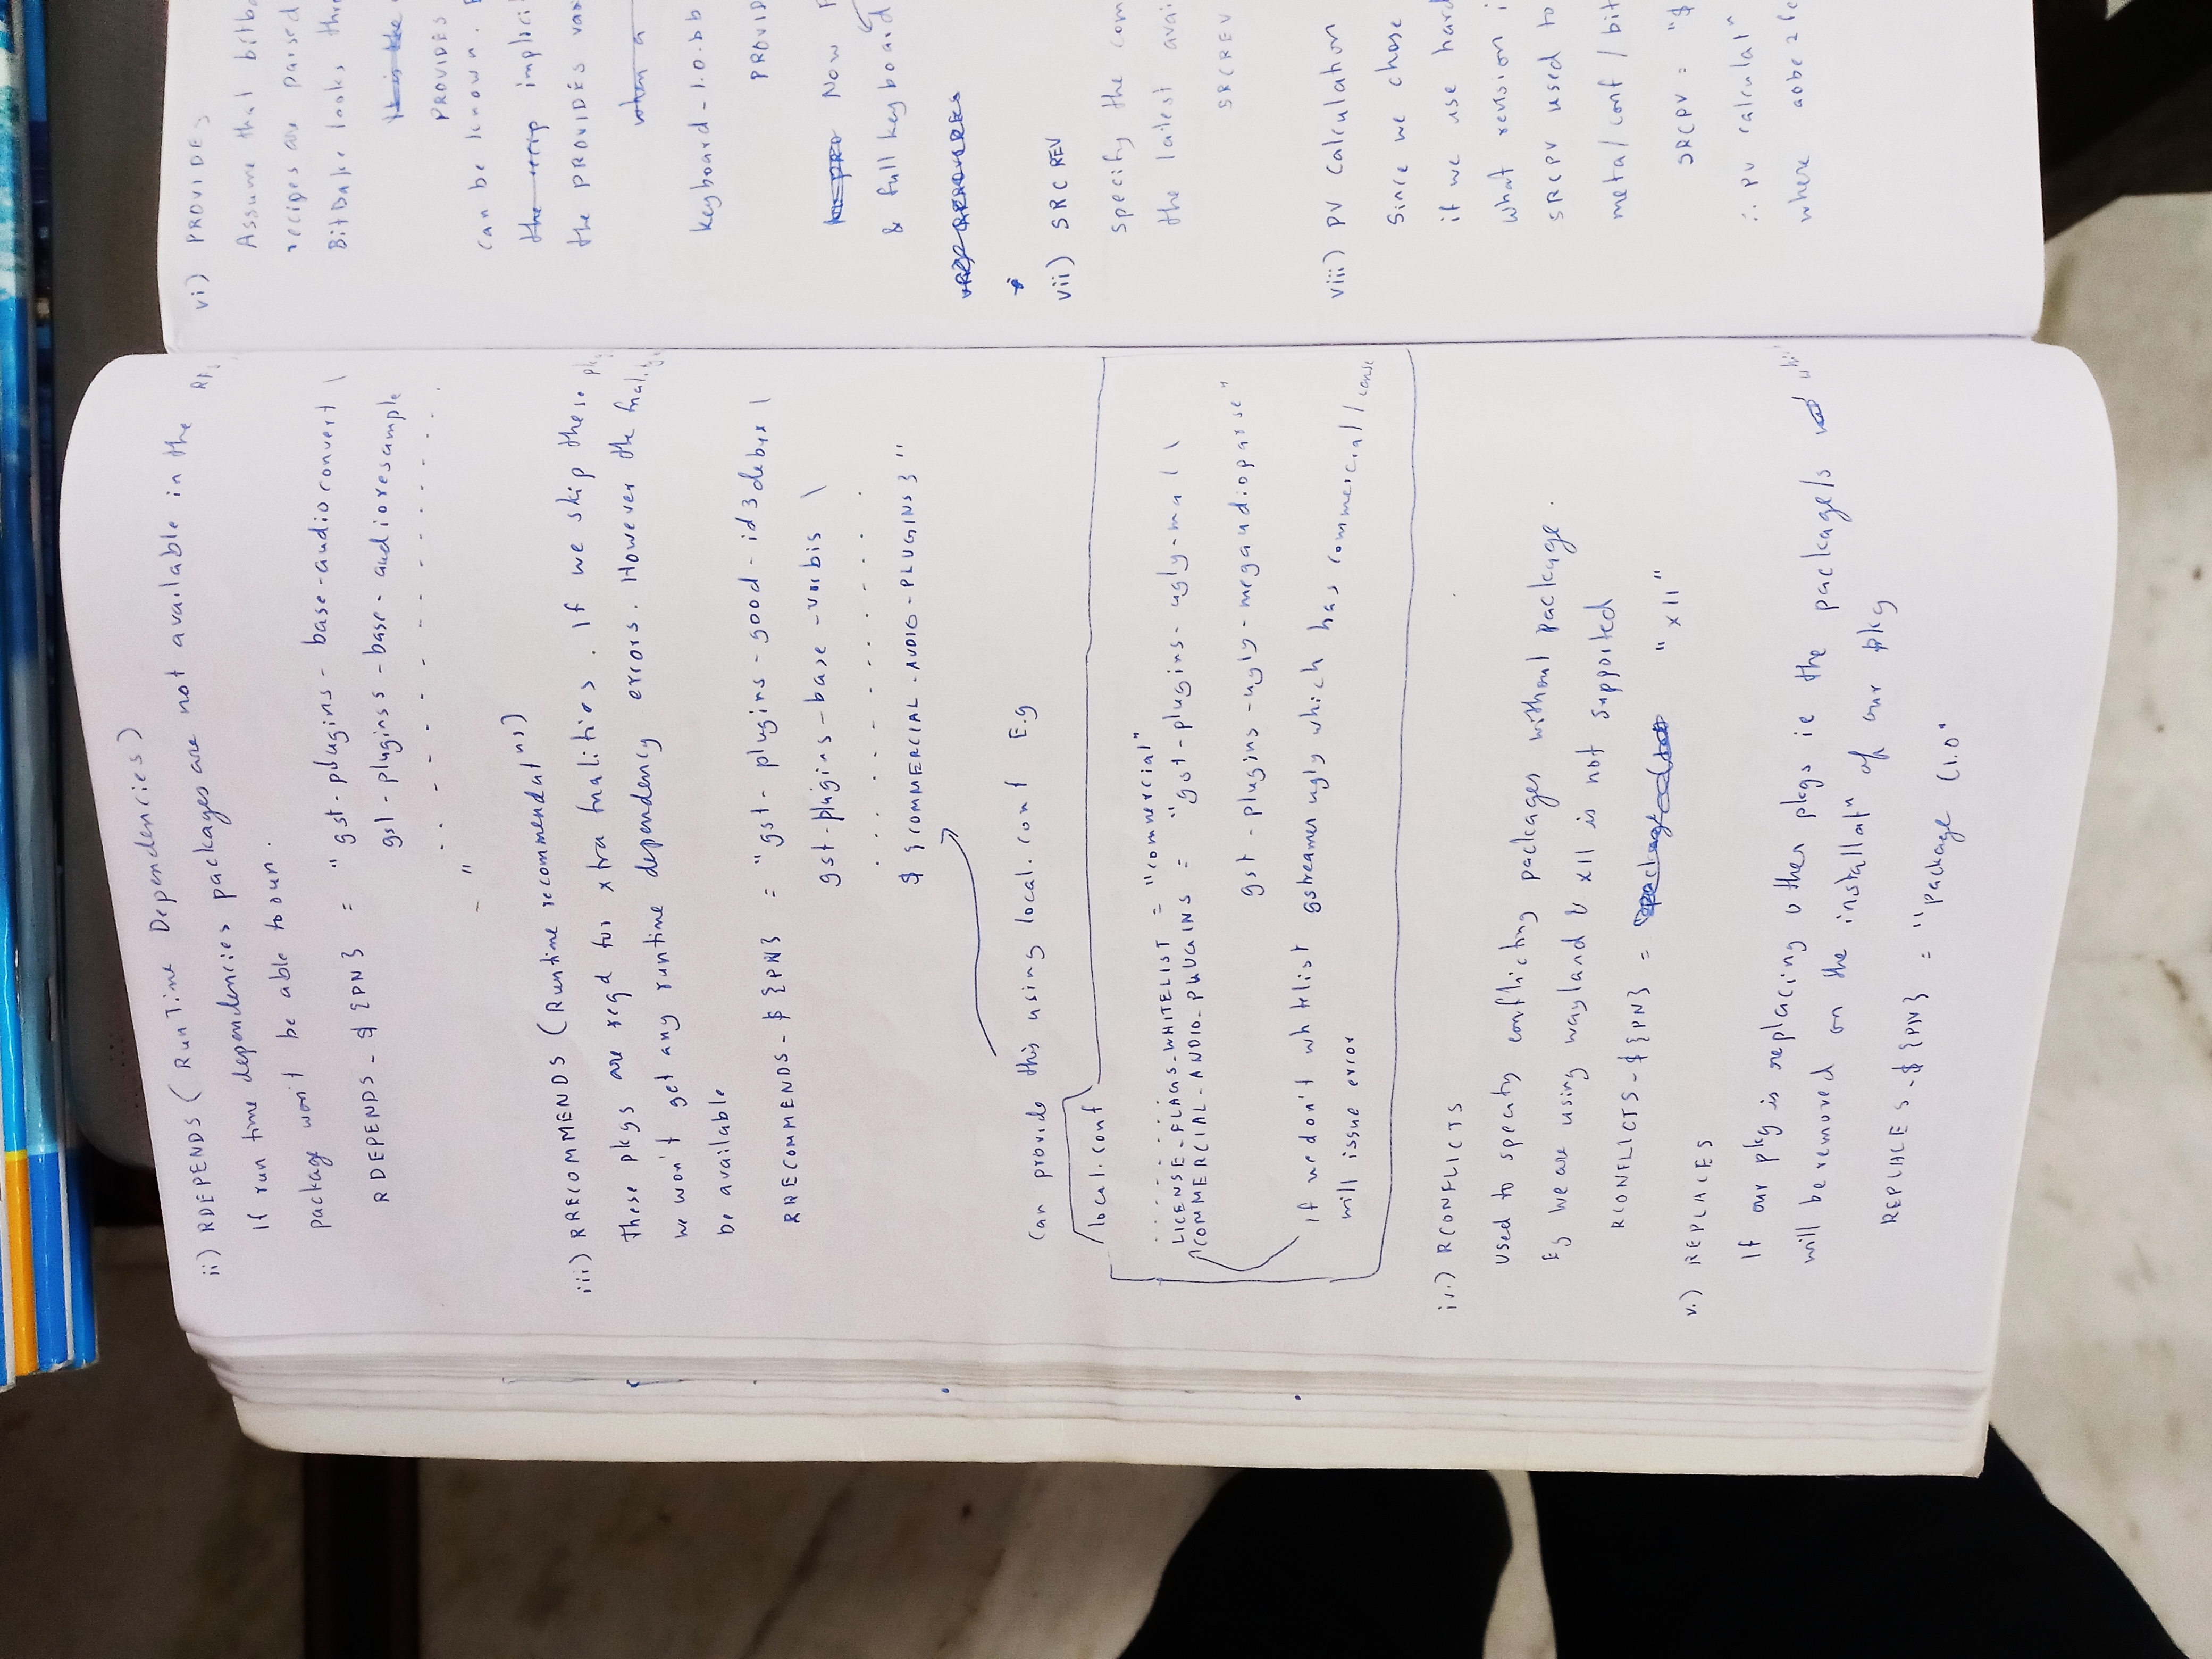 ii) RDEPENDS (RunTime Dependencies)
If run time dependencies packages are not available in the
package won't be able to run.
RDEPENDS_${PN} = "gst-plugins-base-audioconvert \
gst-plugins-base-audioresample
. . . . . . . . . . . .
"
iii) RRECOMMENDS (Runtime recommendatns)
These pkgs are reqd for xtra fnalities. If we skip these pkg
we won't get any runtime dependency errors. However the fnality
be available
RRECOMMENDS_${PN} = "gst-plugins-good-id3debux \
gst-plugins-base-vorbis \
. . . . . . . . . .
${COMMERCIAL_AUDIO_PLUGINS}"
Can provide this using local.conf E.g
local.conf
. . . . . . . .
LICENSE_FLAGS_WHITELIST = "commercial"
COMMERCIAL_AUDIO_PLUGINS = "gst-plugins-ugly-mad \
gst-plugins-ugly-mpegaudioparse"
if we don't whitelist gstreamer ugly which has commercial license
will issue error
iv.) RCONFLICTS
used to specify conflicting packages without package.
Eg we are using wayland & x11 is not supported
RCONFLICTS_${PN} = "x11"
v.) REPLACES
If our pkg is replacing other pkgs ie the package/s
will be removed on the installatn of our pkg
REPLACES_${PN} = "package (1.0"
vi) PROVIDES
Assume that bitba
recipes are parsed
BitBake looks thr
PROVIDES
can be known.
the recip implici
the PROVIDES var
when a
keyboard-1.0.bb
PROVID
Now
& full keyboard
vii) SRCREV
specify the com
the latest avai
SRCREV
viii) PV calculation
Since we chose
if we use hard
what revision i
SRCPV used to
meta/conf/bit
SRCPV = "$
∴ PV calculatn
where